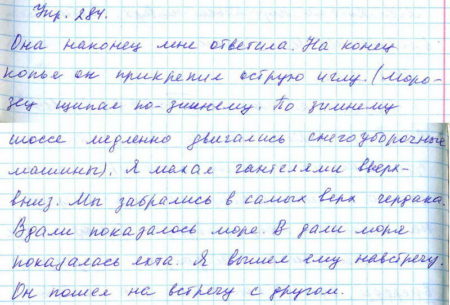 Упр. 284.
Она наконец мне ответила. На конец
копья он прикрепил острую иглу. (Моро-
зец щипал по-зимнему. По зимнему
шоссе медленно двигались снегоуборочные
машины). Я махал гантелями вверх-
вниз. Мы забрались в самых верх чердака.
Вдали показалось море. В дали моря
показалась яхта. Я вышел ему навстречу.
Он пошел на встречу с другом.